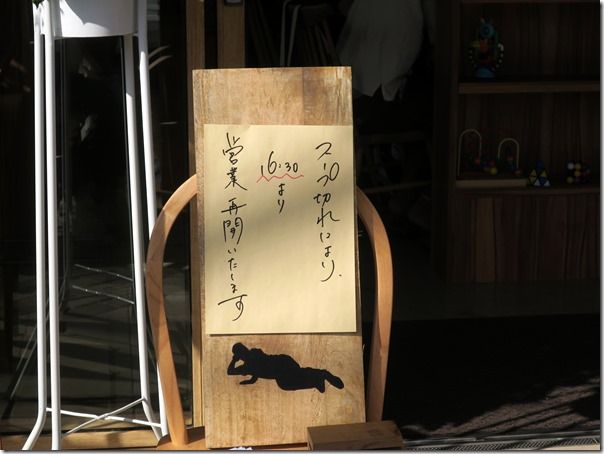 スープ切れにより、
16:30
より
営業再開いたします